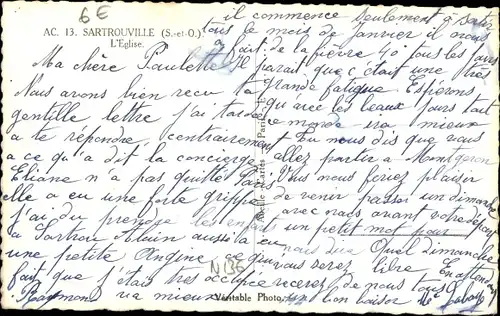 6 €
AC. 13. SARTROUVILLE (S.-et-O.)
L'Église.
Ma chère Paulette
Nous avons bien reçu ta
gentille lettre j'ai tardé
a te répondre, contrairement
a ce qu'a dit la concierge
Eliane n'a pas quitté Paris
elle a eu une forte grippe
j'ai du prendre les enfants
a Sartrou Alain aussi a eu
une petite Angine ce qui
fait que j'étais très occupée
Raymond va mieux
il commence seulement à sortir
tous le mois de janvier il nous
a fait de la fièvre 40 tous les jours
Il parait que c'était une très
grande fatigue Espérons
qu'avec les beaux jours tout
ce monde ira mieux
Tu nous dis que vous
allez partir a Montgeron
Vous nous feriez plaisir
de venir passer un dimanche
avec nous avant votre départ
un petit mot pour
nous dire Quel dimanche
vous serez libre En attendant
recevez de nous tous
un bon baiser
N136
Véritable Photo